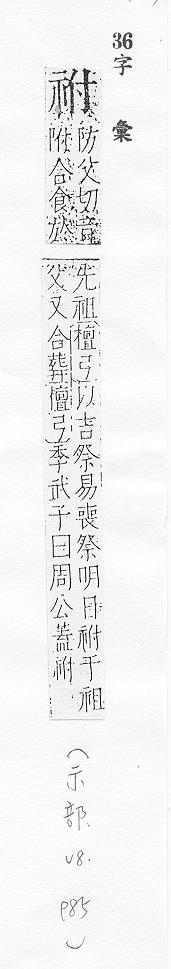 36
字彙
祔
防父切音
附合食於
先祖檀弓以吉祭易喪祭明日祔于祖
父又合葬檀弓季武子曰周公蓋祔
(示部 v8. p85)